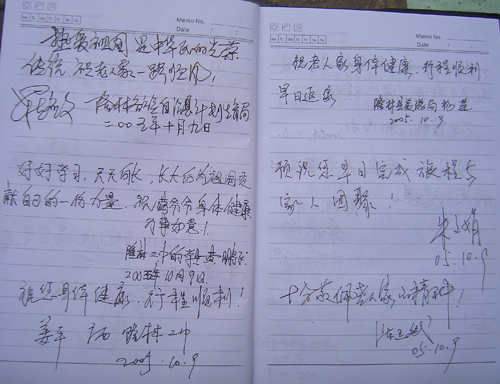 Memo No.
Date
热爱祖国是中华民族的光荣
传统 祝老人家一路顺风！
隆林各族自治县计划生育局
二00五年十月九日
好好学习，天天向上，长大后为祖国贡
献自己的一份力量。祝爷爷身体健康
万事如意！
隆林二中的
2005年10月9日
祝您身体健康，行程顺利！
姜军 广西隆林二中
2005.10.9
Memo No.
Date
祝老人家身体健康，行程顺利
早日返家
隆林县
2005.10.9
预祝您早日完成旅程与
家人团聚！
05.10.9
十分敬佩老人家的精神！
05.10.9